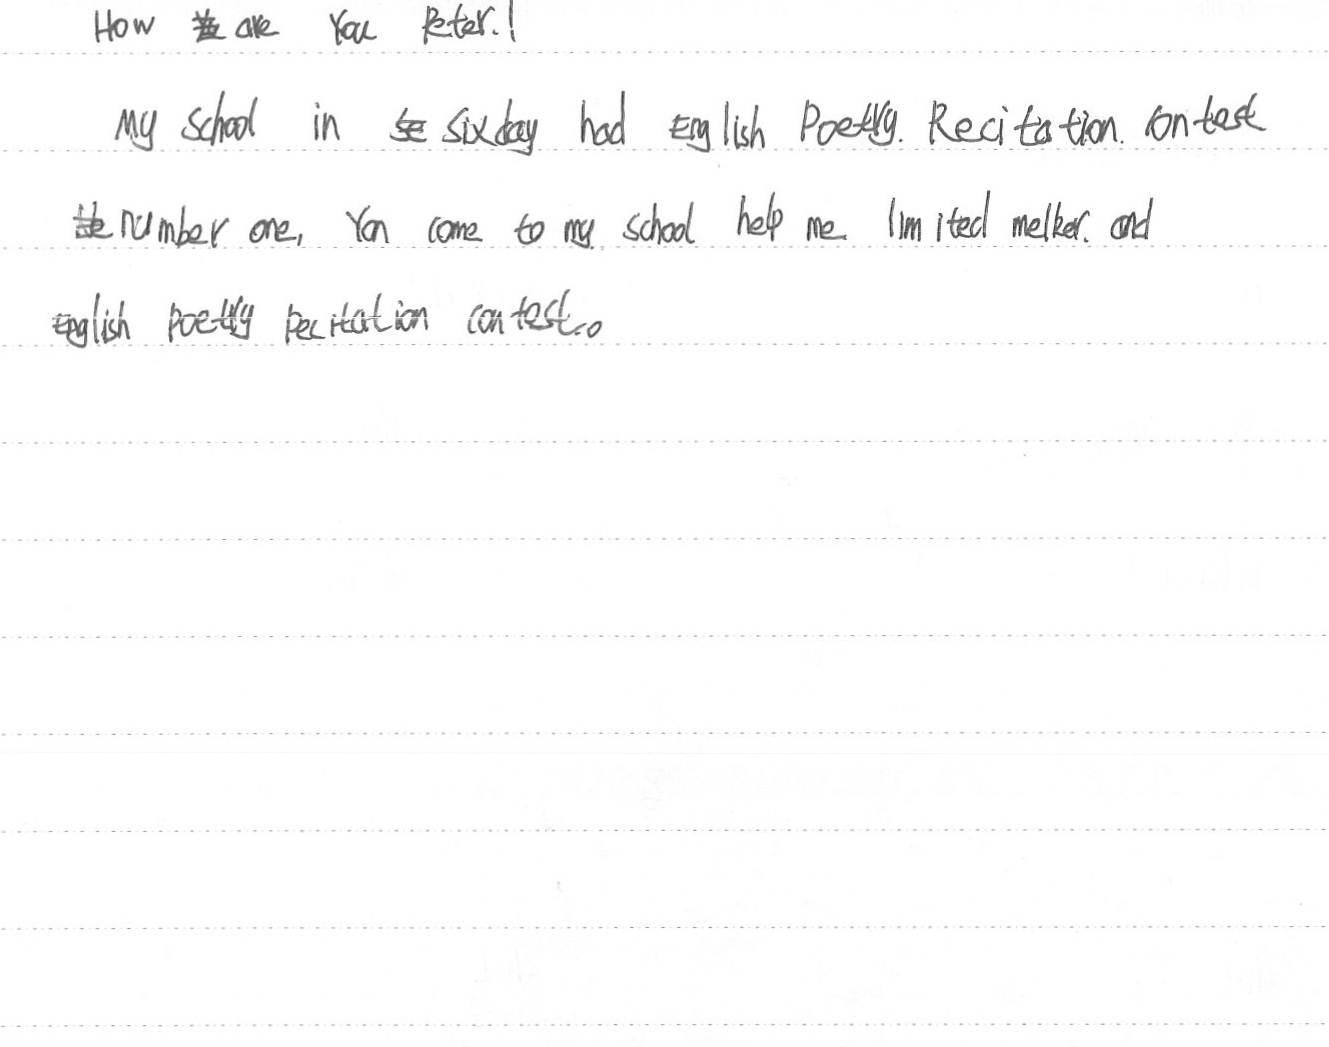 How are You Peter.!
My school in sixday had English Poetry. Recitation. Contest
number one, You come to my school help me limited melker. and
English poetry Recitation contest.。